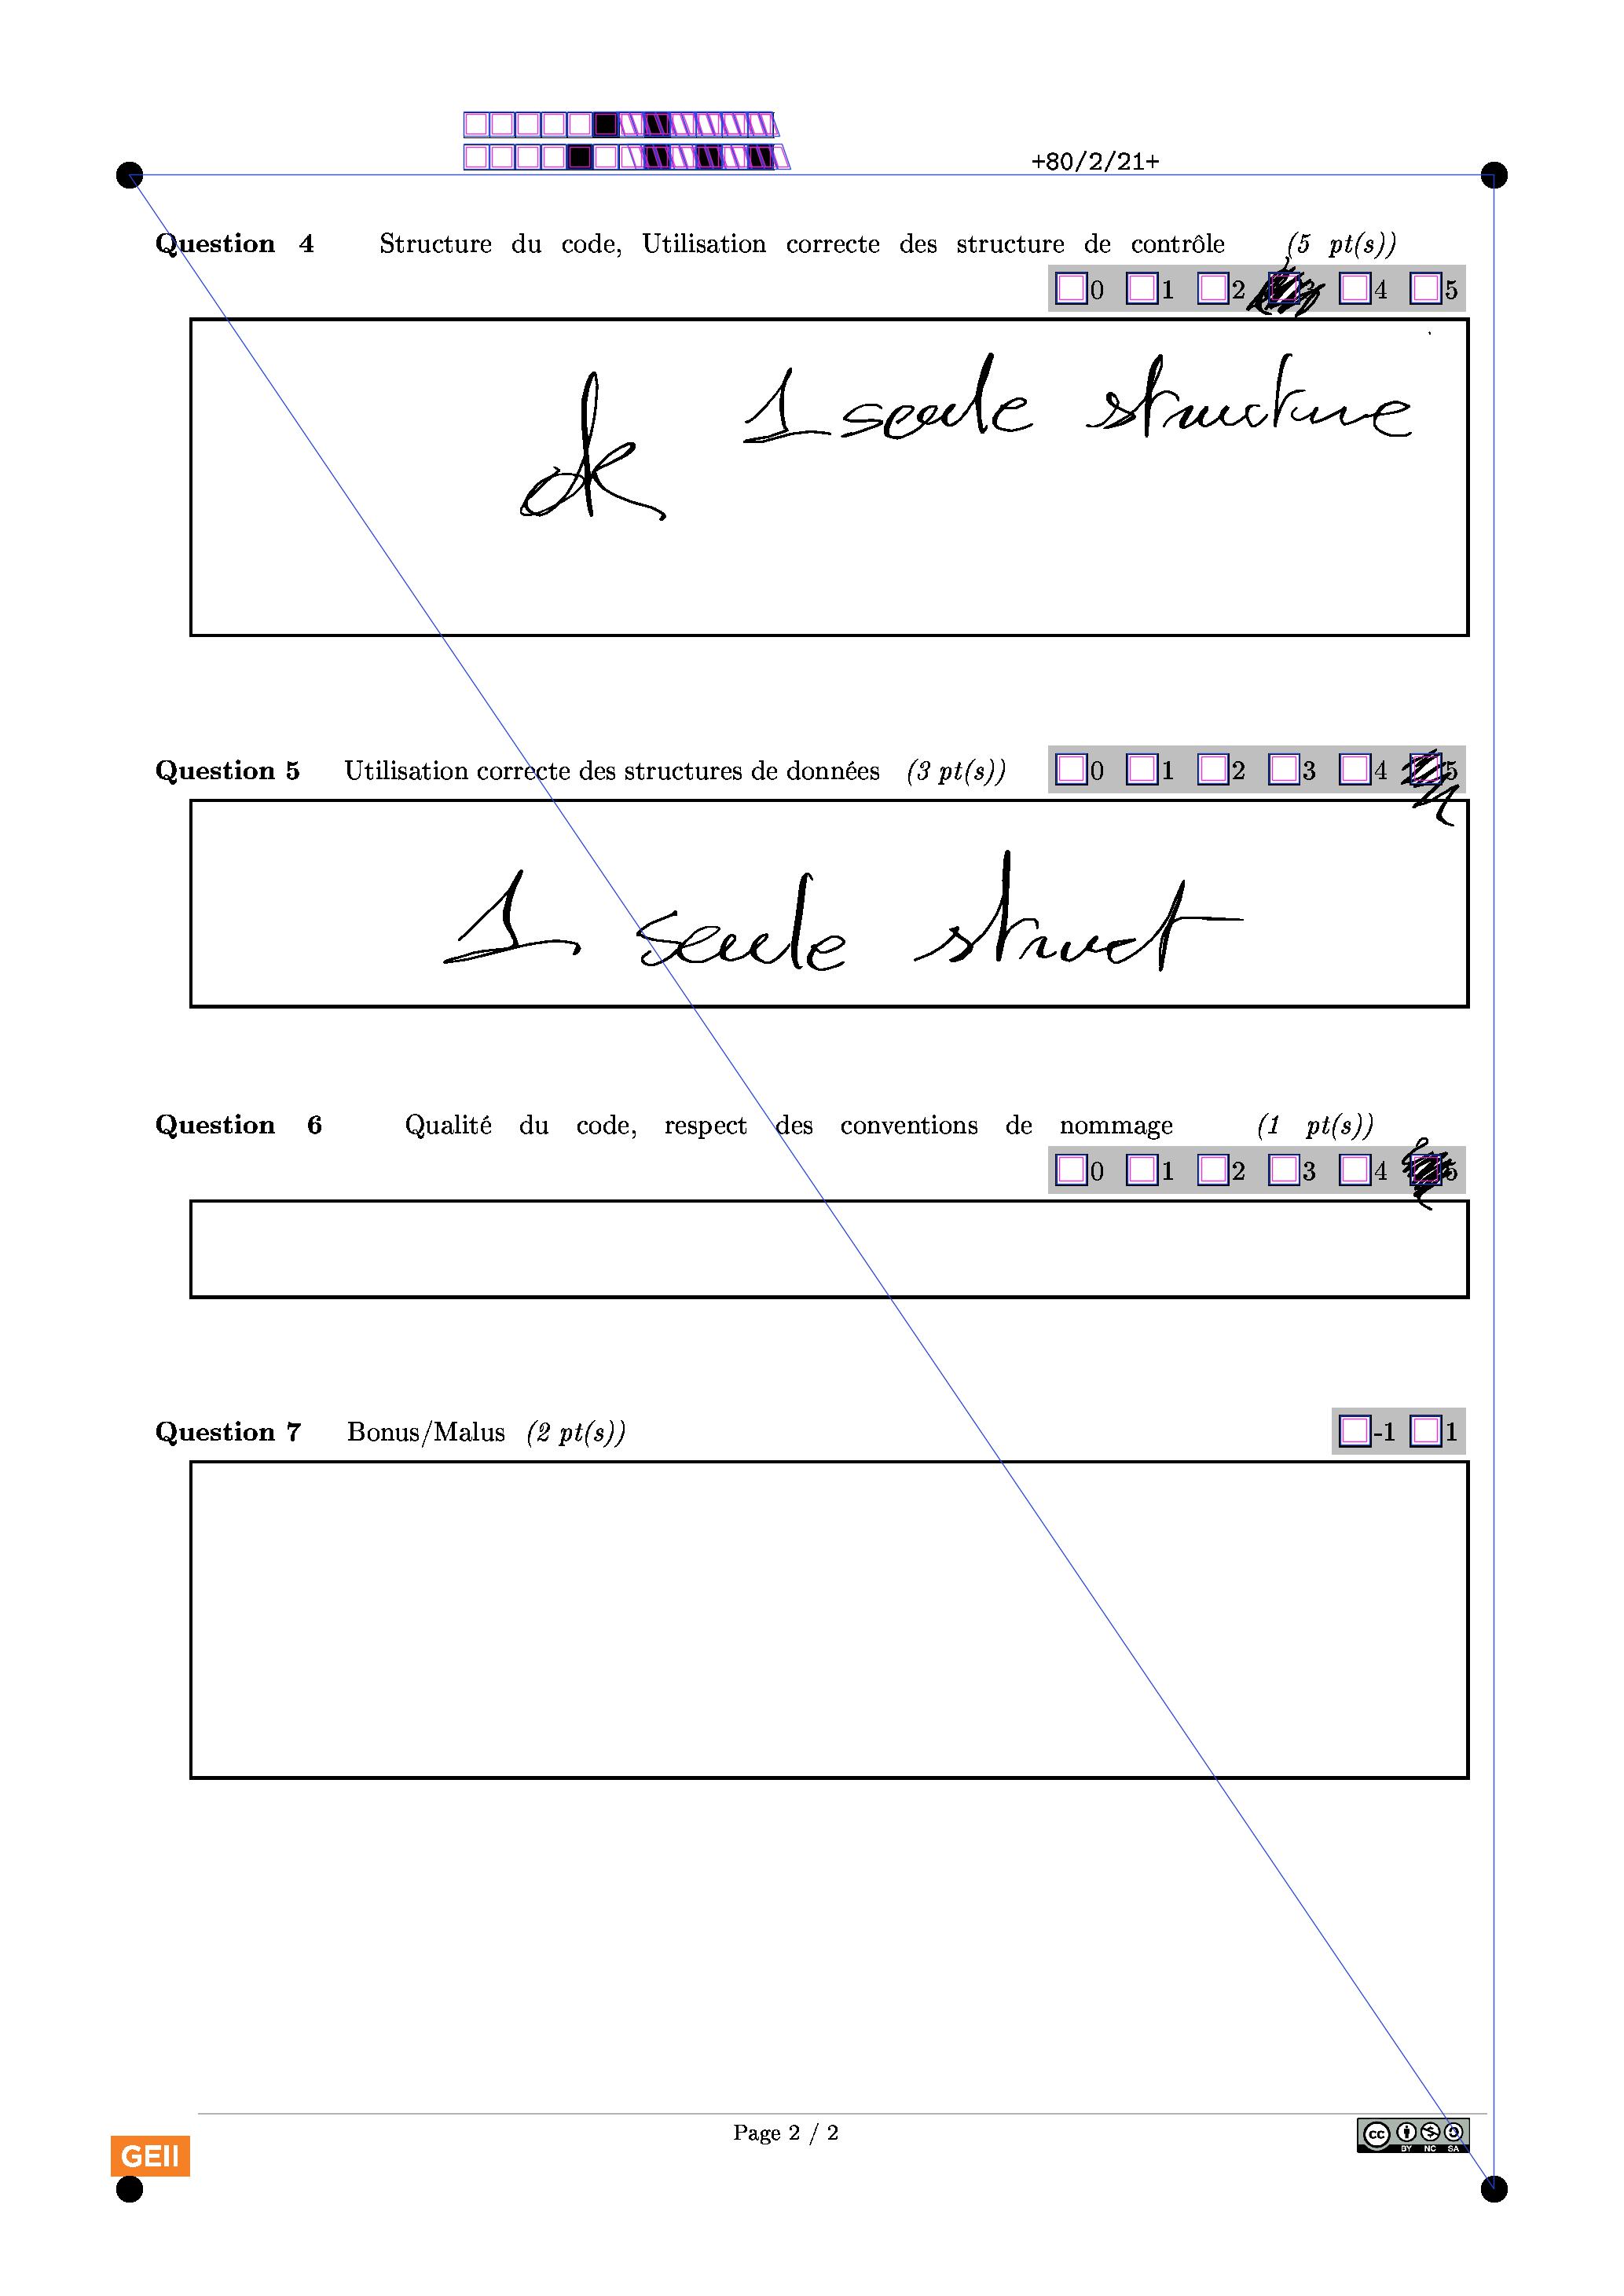 +80/2/21+
Question 4 Structure du code, Utilisation correcte des structure de contrôle (5 pt(s))
0 1 2 3 4 5
ok 1 seule structure
Question 5 Utilisation correcte des structures de données (3 pt(s)) 0 1 2 3 4 5
1 seule struct
Question 6 Qualité du code, respect des conventions de nommage (1 pt(s))
0 1 2 3 4 5
Question 7 Bonus/Malus (2 pt(s)) -1 1
Page 2 / 2
GEII
cc BY NC SA